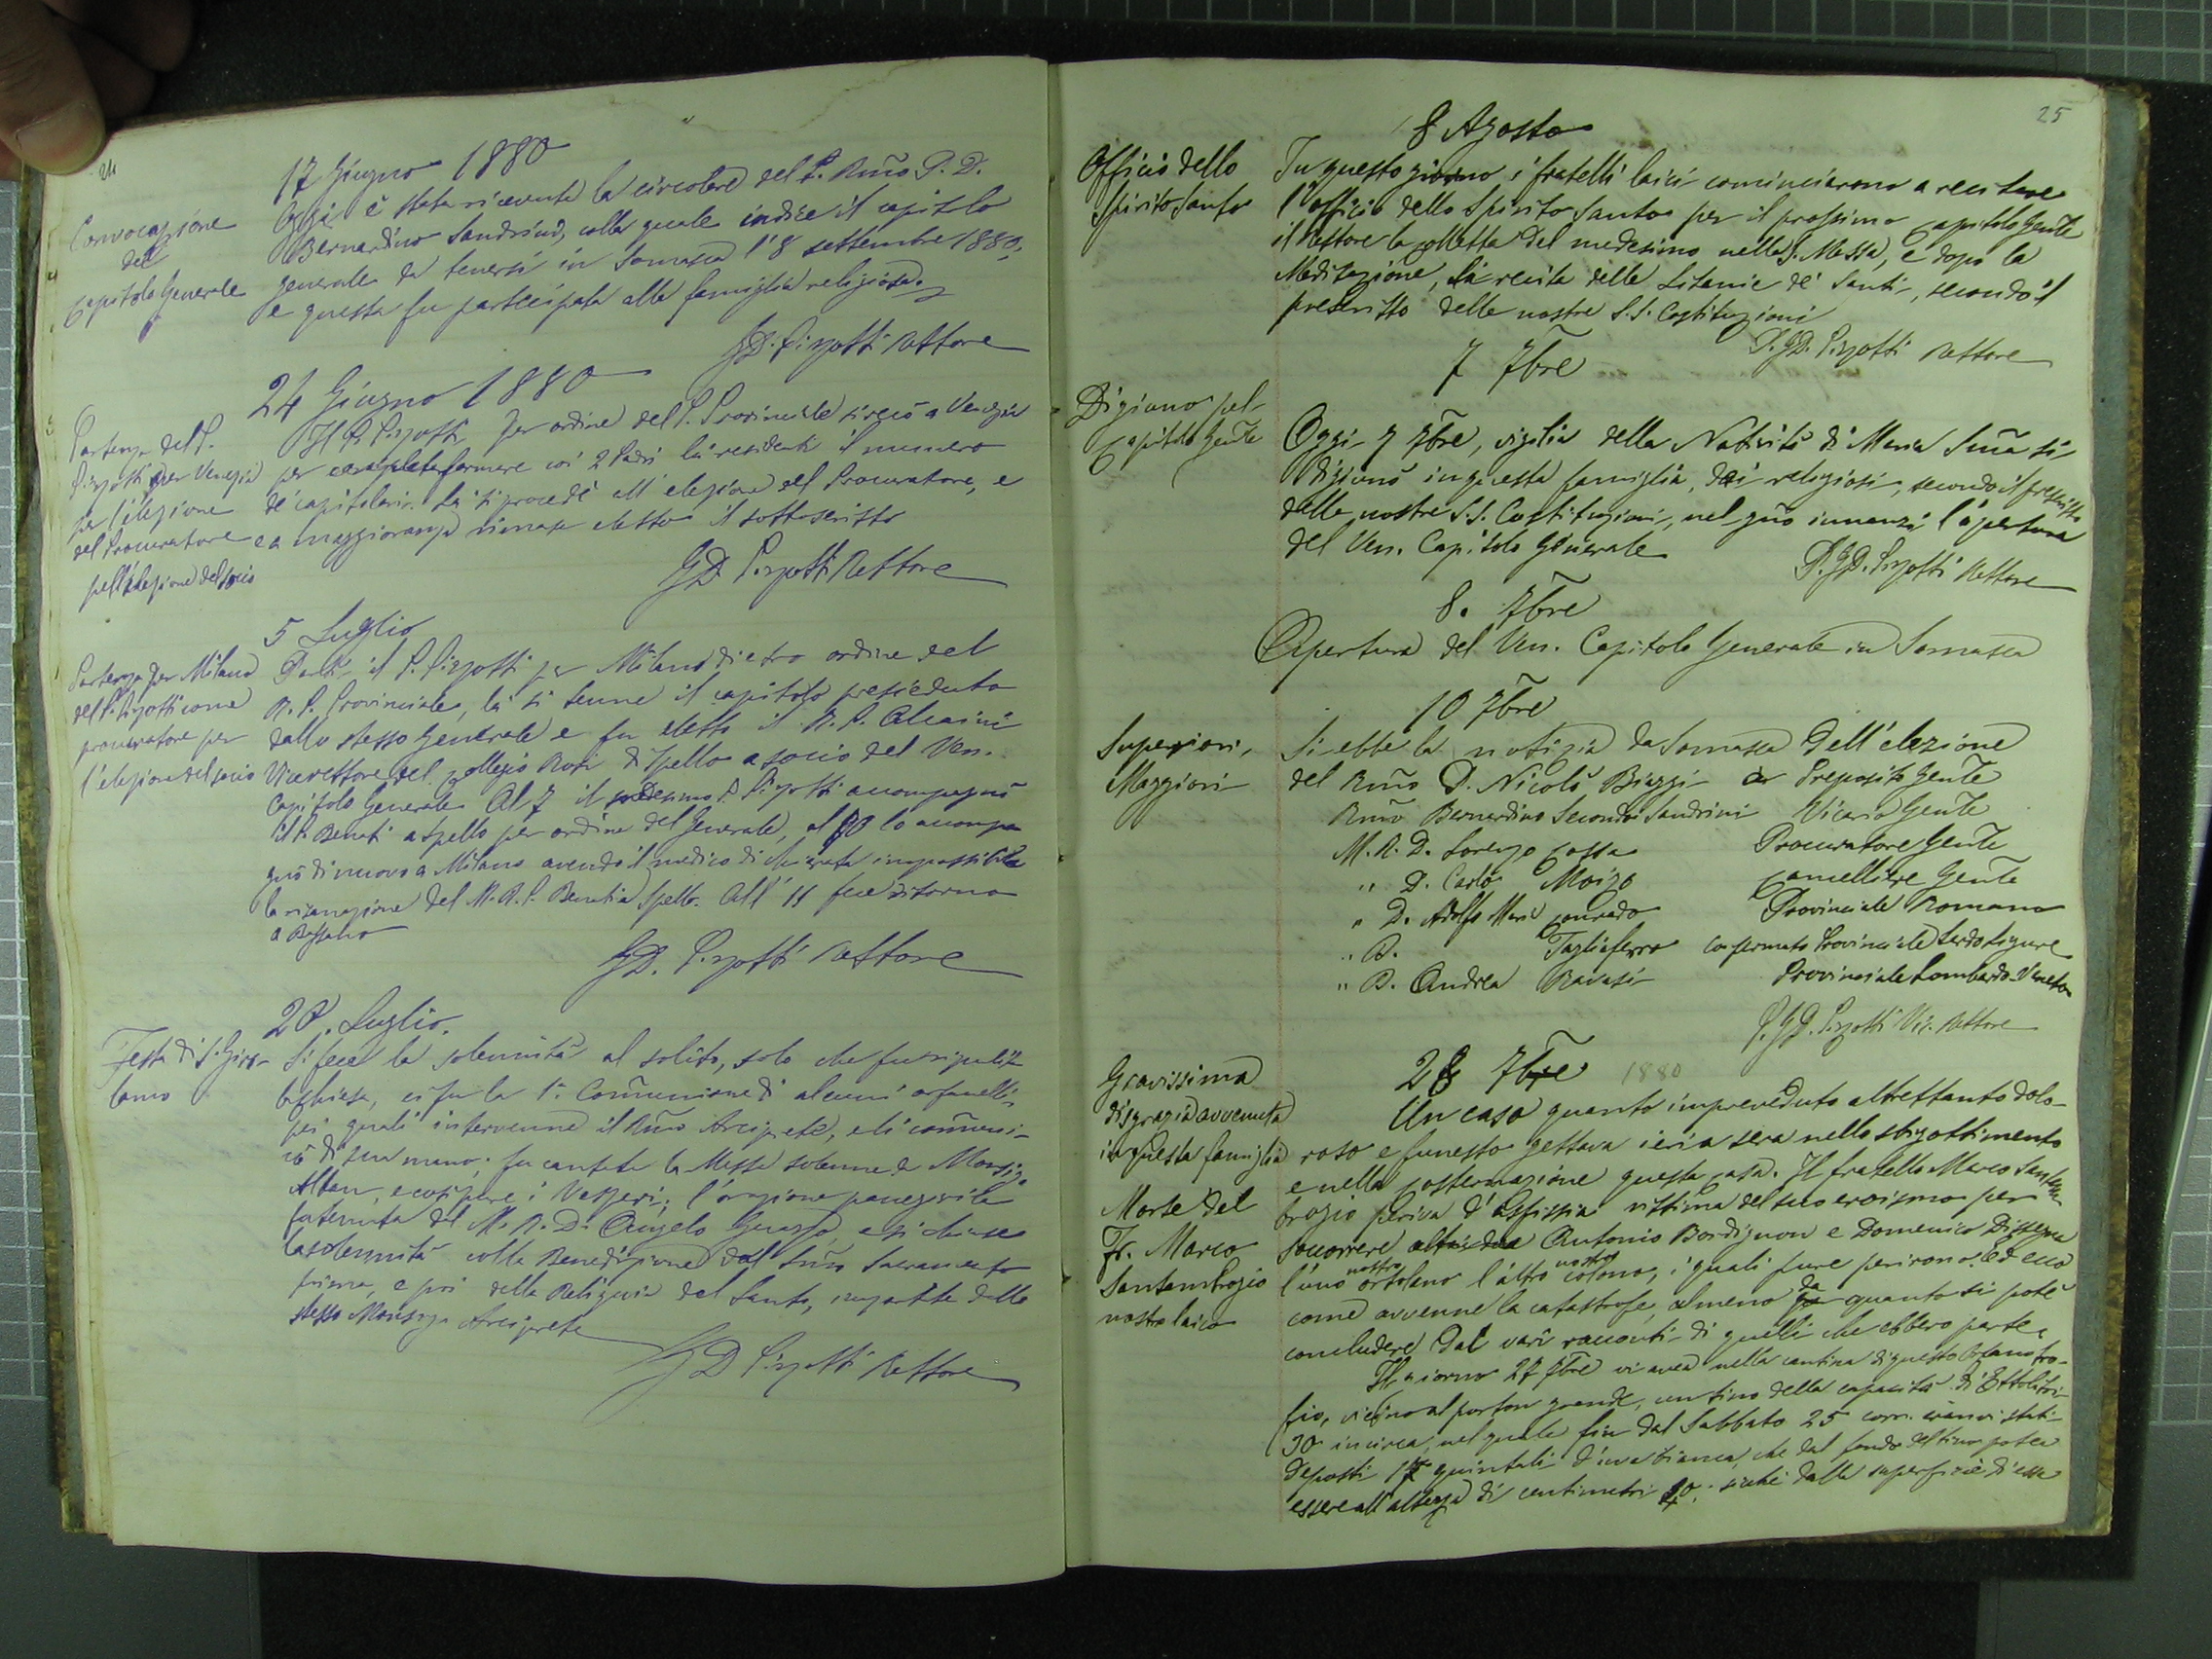 24
17 Giugno 1880
Convocazione
del
Capitolo Generale
Oggi è stata ricevuta la circolare del P. Rm̃o P. D.
Bernardino Sandrini, colla quale indice il capitolo
generale da tenersi in Somasca l'8 settembre 1880,
e questa fu partecipata alla famiglia religiosa.
GD. Pizzotti Rettore
24 Giugno 1880
Partenza del P.
Pizzotti per Venezia
per l'elezione
del Procuratore
pell'elezione del socio
Il P. Pizzotti per ordine del P. Provinciale si recò a Venezia
per formare coi 2 Padri là residenti il numero
de' capitolari. Là si procedé all'elezione del Procuratore, e
a maggioranza rimase eletto il sottoscritto
GD. Pizzotti Rettore
5 Luglio
Partenza per Milano
del P. Pizzotti come
procuratore per
l'elezione del socio
Partì il P. Pizzotti per Milano dietro ordine del
R. P. Provinciale, là si tenne il capitolo presieduto
dallo stesso Generale e fu eletto il R. P. Alcaini
Vicerettore del Collegio Rosi di Spello a socio del Ven.
Capitolo Generale Al 7 il P. Pizzotti accompagnò
il P. Benati a Spello per ordine del Generale, al 10 lo accompa
gnò di nuovo a Milano avendo il medico dichiarata impossibile
la sanazione del M. R. P. Benati a Spello. All' 11 fece ritorno
a Bassano
GD. Pizzotti Rettore
20. Luglio.
Festa di S. Giro-
lamo
Si fece la solennità al solito, solo che fu ripulita
la chiesa, ci fu la 1ª. Com̃unione di alcuni orfanelli,
pei quali intervenne il Rm̃o Arciprete, e li com̃uni-
cò di sua mano; fu cantata la Messa solenne da Monsig.
e così pure i Vesperi; l'orazione panegirica
fu tenuta dal M. R. D. Angelo e si chiuse
la solennità colla Benedizione del Sm̃o Sacramento
prima, e poi della Reliquia del Santo, impartite dallo
stesso Monsig. Arciprete
GD Pizzotti Rettore
25
8 Agosto
Officio dello
Spirito Santo
In questo giorno i fratelli laici cominciarono a recitare
l'officio dello Spirito Santo per il prossimo Capitolo Gen̄le
il Rettore la colletta del medesimo nella S. Messa, e dopo la
Meditazione, la recita delle Litanie de' Santi, secondo il
prescritto delle nostre S.S. Costituzioni
P. GD. Pizzotti Rettore
7 7bre
Digiuno pel
Capitolo Gen̄le
Oggi 7 7bre, vigilia della Natività di Maria Sm̃a si
digiunò in questa famiglia, dai religiosi, secondo il prescritto
dalle nostre S.S. Costituzioni, nel gño innanzi l'apertura
del Ven. Capitolo Generale
P. GD. Pizzotti Rettore
8. 7bre
Apertura del Ven. Capitolo Generale in Somasca
10 7bre
Superiori,
Maggiori
Si ebbe la notizia da Somasca dell'elezione
del Rm̃o D. Nicolò Biaggi a Preposito Gen̄le
Rm̃o Bernardino Secondo Sandrini Vicario Gen̄le
M. R. D. Lorenzo Cossa Procuratore Gen̄le
" D. Carlo Moizo Cancelliere Gen̄le
" D. Adolfo Maria Conrado Provinciale Romano
" D. Tagliaferro confermato Provinciale Sardo Ligure
" D. Andrea Ravasi Provinciale Lombardo Veneto
P. GD. Pizzotti Vic. Rettore
28 7bre 1880
Gravissima
disgrazia avvenuta
in questa famiglia
Morte del
Fr. Marco
Santambrogio
nostro laico
Un caso quanto impreveduto altrettanto dolo-
roso e funesto gettava ieri a sera nello sbigottimento
e nella costernazione questa casa. Il fratello Marco Santam
brogio periva d'asfissia vittima del suo eroismo per
soccorrere altri due Antonio Bordignon e Domenico Dissegna
l'uno nostro ortolano l'altro nostro colono, i quali pure perirono. Ed ecco
come avvenne la catastrofe, almeno da quanto si poté
concludere dai varî racconti di quelli che ebbero parte.
Il giorno 27 7bre vi avea nella cantina di questo Orfanotro-
fio, vicino al porton grande, un tino della capacità di Ettolitri
30 incirca, nel quale fin dal Sabbato 25 corr. eranvi stati
deposti 17 quintali d'uva bianca, che dal fondo del tino potea
essere all'altezza di centimetri siché dalla superficie d'essa